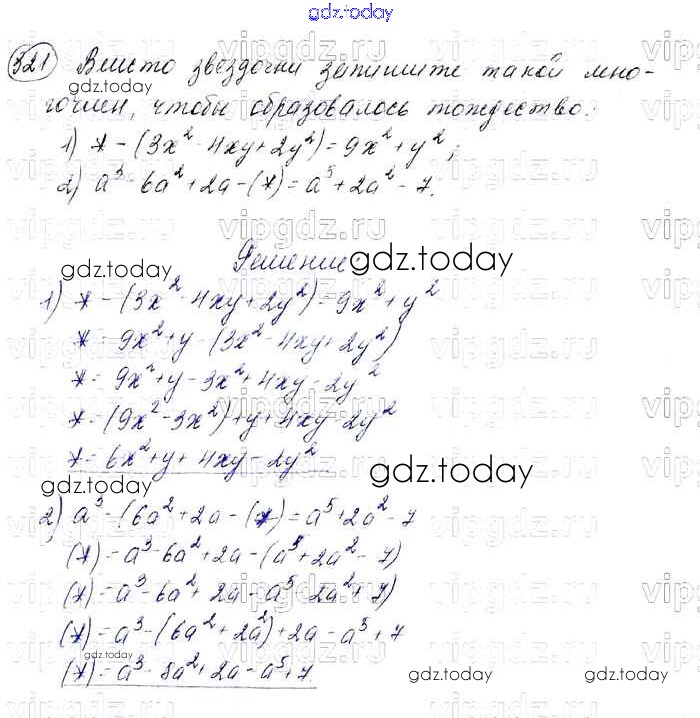 gdz.today
321 Вместо звездочки запишите такой мно-
гочлен, чтобы образовалось тождество:
1) * - (3x² - 4xy + 2y²) = 9x² + y²;
2) a³ - 6a² + 2a - (*) = a⁵ + 2a² - 7.
Решение
gdz.today gdz.today
1) * - (3x² - 4xy + 2y²) = 9x² + y²
* = 9x² + y - (3x² - 4xy + 2y²)
* = 9x² + y - 3x² + 4xy - 2y²
* = (9x² - 3x²) + y + 4xy - 2y²
* = 6x² + y + 4xy - 2y²
gdz.today gdz.today
2) a³ - (6a² + 2a - (*) = a⁵ + 2a² - 7
(*) = a³ - 6a² + 2a - (a⁵ + 2a² - 7)
(*) = a³ - 6a² + 2a - a⁵ - 2a² + 7)
(*) = a³ - (6a² + 2a²) + 2a - a⁵ + 7
(*) = a³ - 8a² + 2a - a⁵ + 7.
gdz.today gdz.today gdz.today
vipgdz.ru